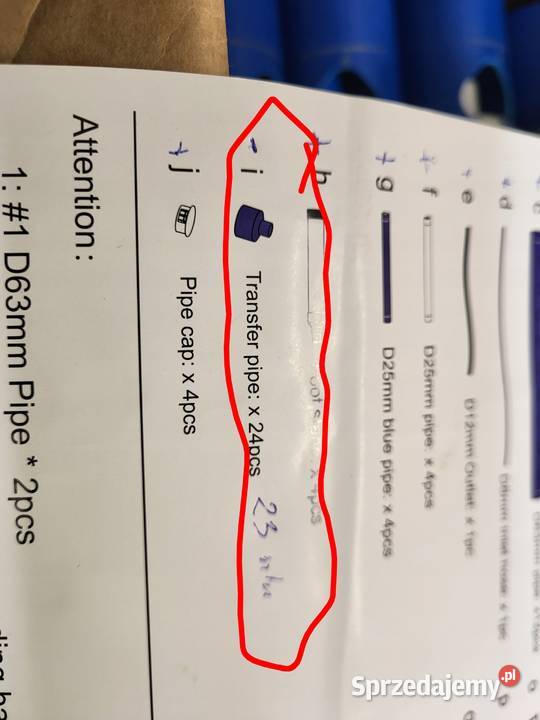 c
d
e D12mm Outlet: x 1pc
f D25mm pipe: x 4pcs
g D25mm blue pipe: x 4pcs
h x 4pcs
i Transfer pipe: x 24pcs 23
j Pipe cap: x 4pcs
Attention:
1: #1 D63mm Pipe * 2pcs
Sprzedajemy.pl